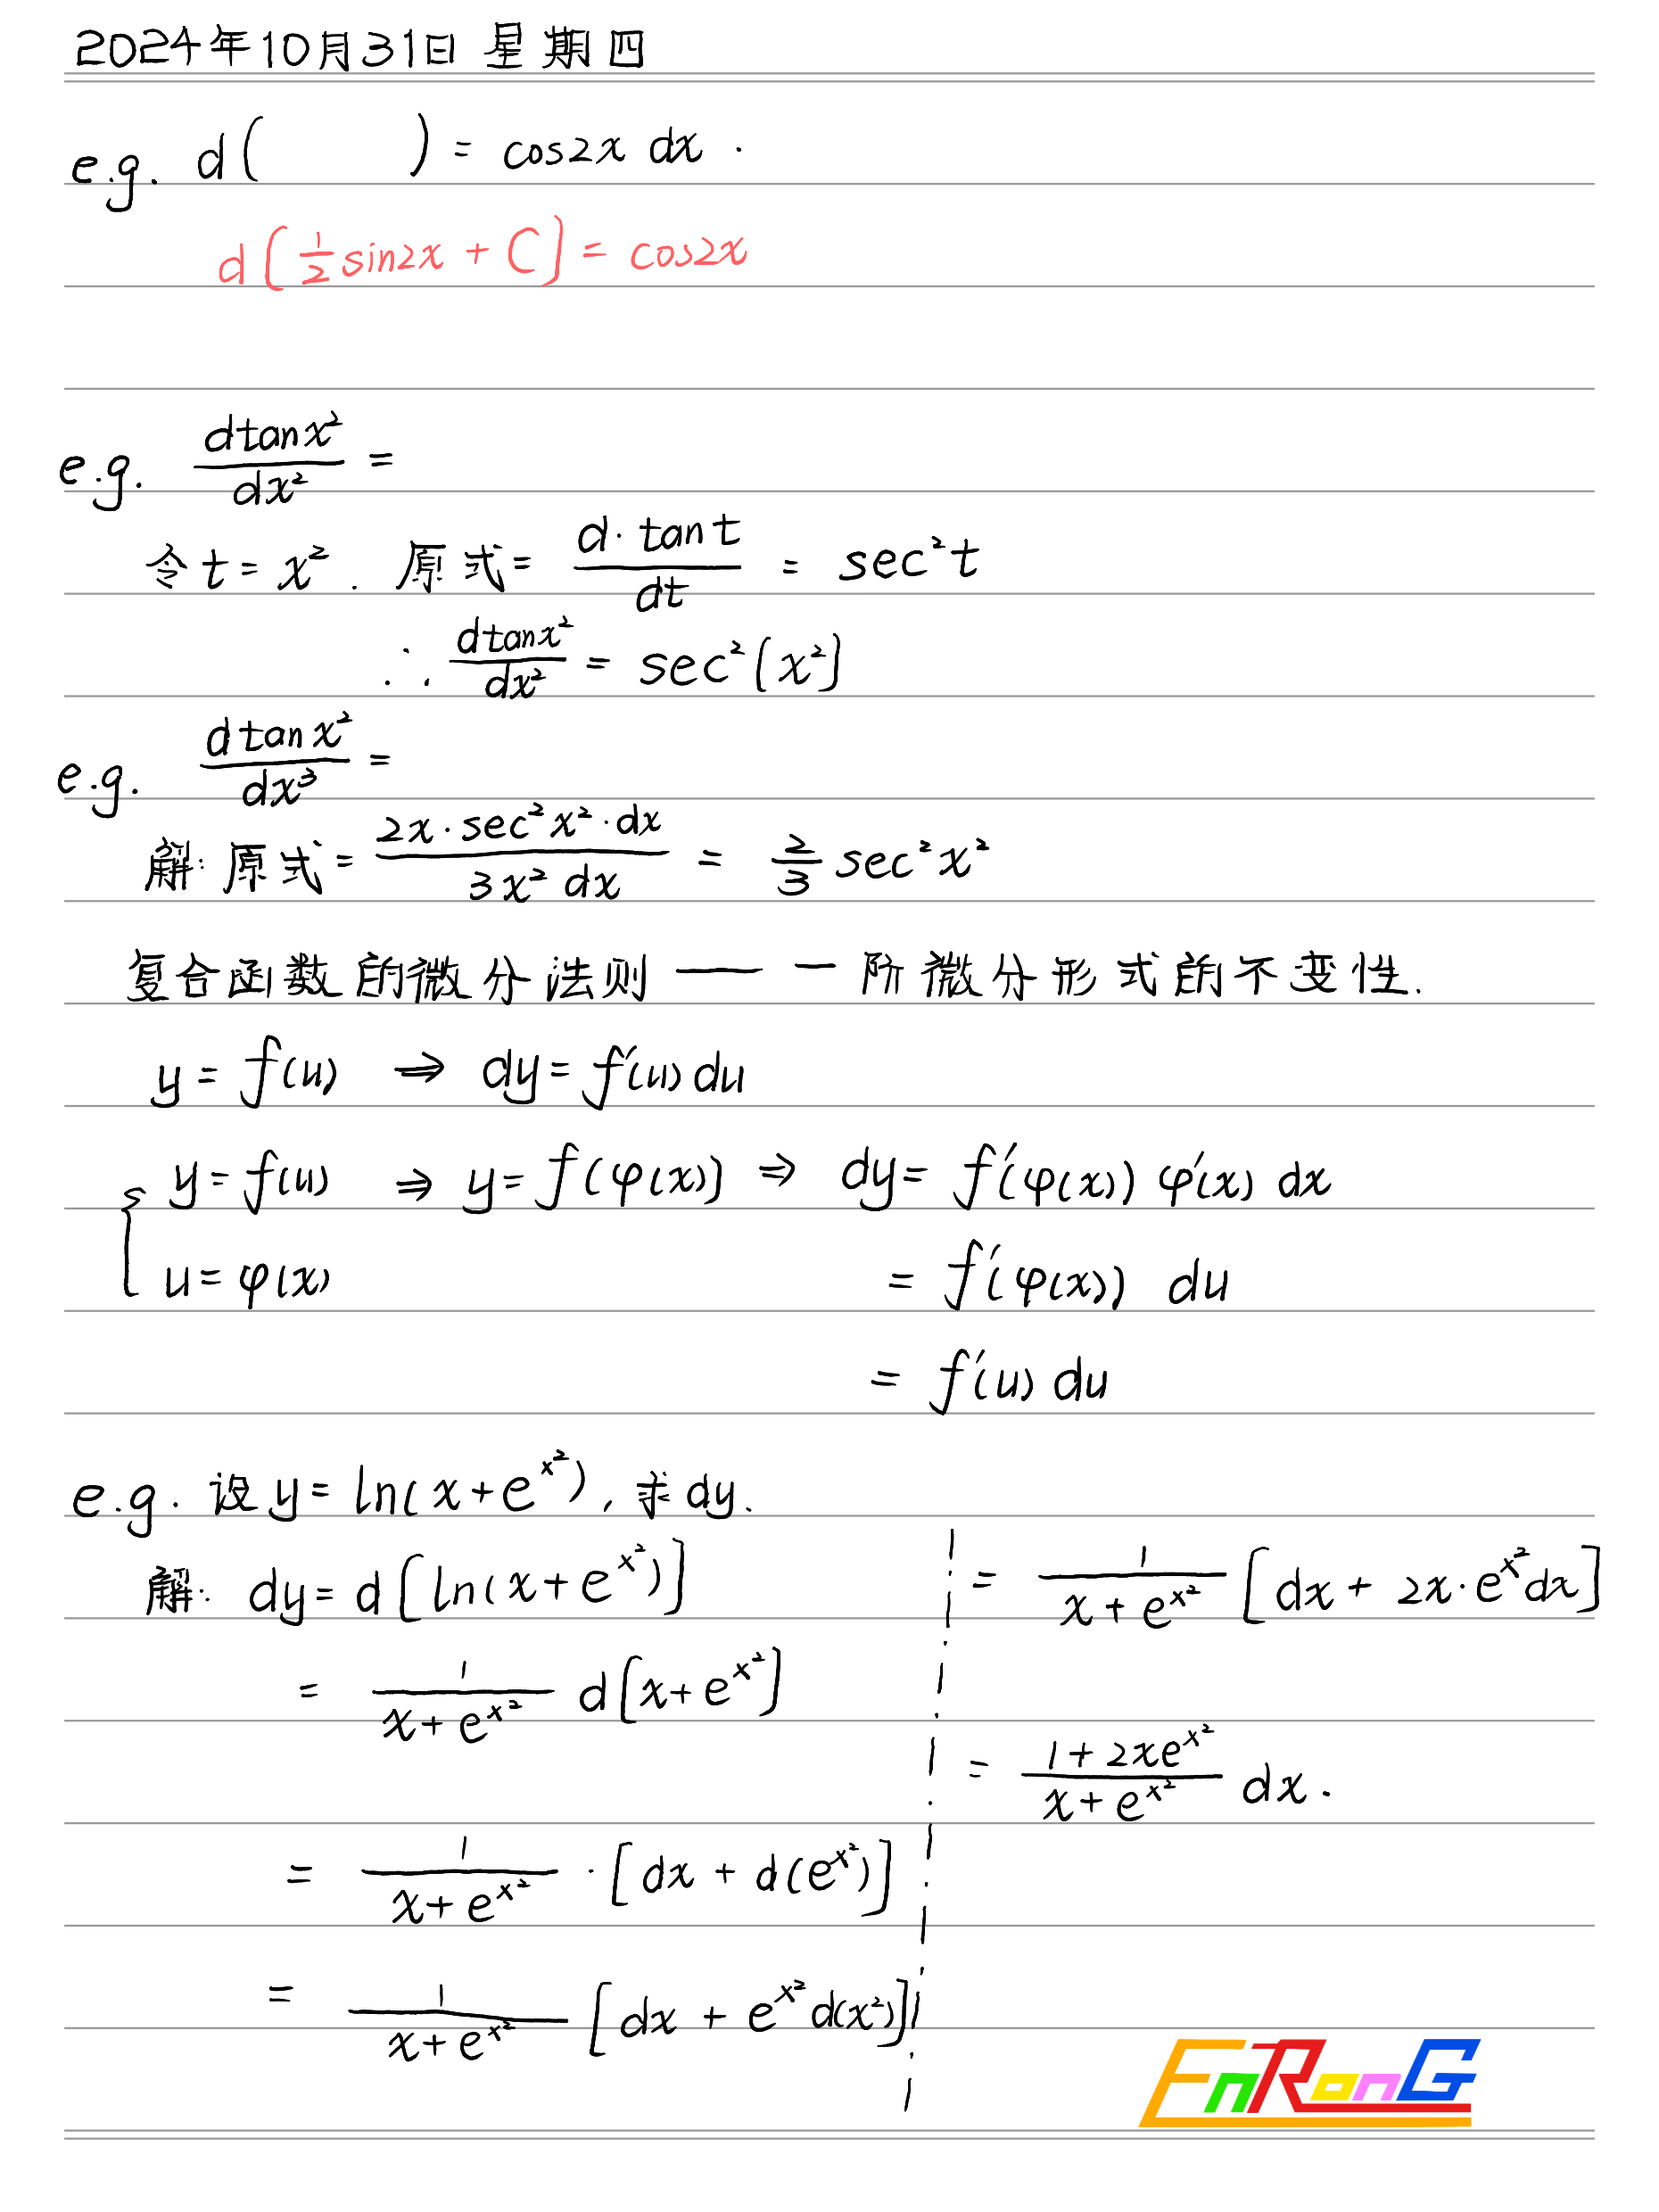 2024年10月31日 星期四
e.g. d(      ) = cos2x dx .
d[½sin2x + C] = cos2x
e.g. dtanx²/dx² =
令t = x² . 原式 = d·tant/dt = sec²t
∴ dtanx²/dx² = sec²[x²]
e.g. dtanx²/dx³ =
解: 原式 = 2x·sec²x²·dx/3x²dx = 2/3 sec²x²
复合函数的微分法则 —— 一阶微分形式的不变性.
y = f(u) ⇒ dy = f′(u)du
y = f(u) ⇒ y = f(φ(x)) ⇒ dy = f′(φ(x)) φ′(x) dx
{ u = φ(x)
= f′(φ(x)) du
= f′(u) du
e.g. 设y = ln(x+e^x²), 求dy.
解: dy = d[ln(x+e^x²)]
= 1/(x+e^x²) d[x+e^x²]
= 1/(x+e^x²) · [dx + d(e^x²)]
= 1/(x+e^x²) [dx + e^x² d(x²)]
= 1/(x+e^x²) [dx + 2x·e^x²dx]
= (1+2xe^x²)/(x+e^x²) dx.
EnRonG